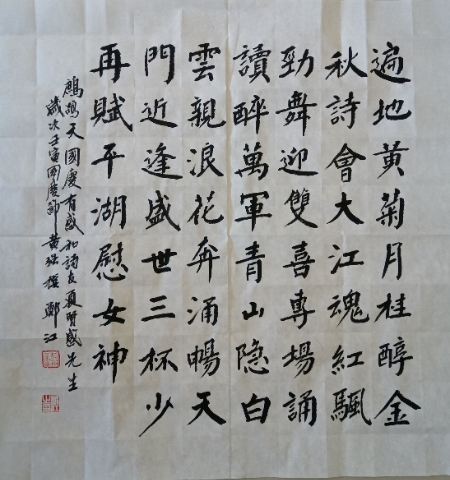 遍地黄菊月桂醇金
秋詩會大江魂紅颿
勁舞迎雙喜專場誦
讀醉萬軍青山隐白
雲親浪花奔涌暢天
門近逢盛世三杯少
再賦平湖慰女神
鷓鴣天國慶有感和詩友夏賢盛先生
歲次壬寅國慶節黄強撰鄭江